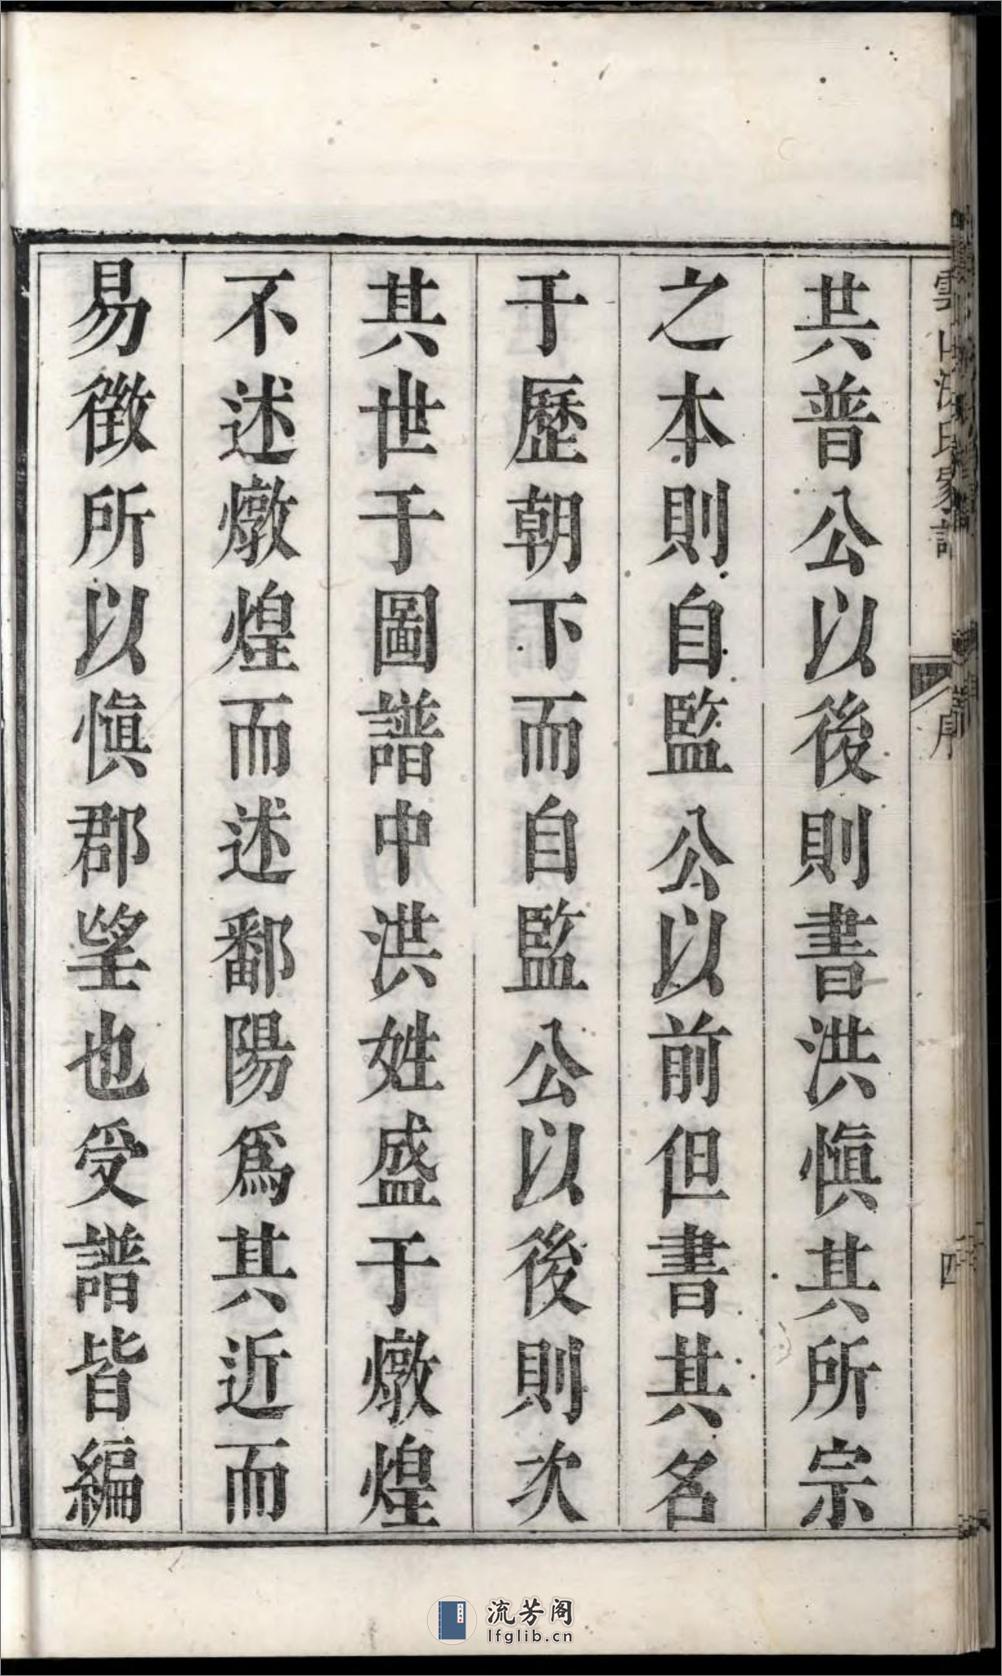 共普公以後則書洪慎其所宗
之本則自監公以前但書其名
于歷朝下而自監公以後則次
其世于圖譜中洪姓盛于燉煌
不述燉煌而述鄱陽爲其近而
易徵所以慎郡望也受譜皆編
序
四
流芳阁
lfglib.cn